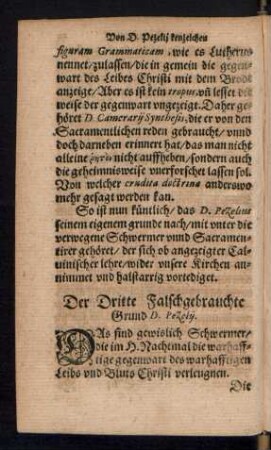 Von D. Pezelij kenzeichen
figuram Grammaticam, wie es Lutherus
nennet/zulassen/die in gemein die gegen-
wart des Leibes Christi mit dem Brodt
anzeigt/Aber es ist kein tropus, vñ lesset die
weise der gegenwart vngezeigt. Daher ge-
höret D. Camerarij Synthesis, die er von den
Sacramentlichen reden gebraucht/vnnd
doch darneben erinnert hat/das man nicht
alleine nicht auffheben/sondern auch
die geheimnisweise vnerforschet lassen sol.
Von welcher erudita doctrina anderswo
mehr gesagt werden kan.
So ist nun küntlich/das D. Pezelius
seinem eigenem grunde nach/mit vnter die
verwegene Schwermer vnnd Sacramen-
tirer gehöret/der sich ob angezeigter Cal-
uinischer lehre/wider vnsere Kirchen an-
nimmet vnd halstarrig vortediget.
Der Dritte Falschgebrauchte
Grund D. Pezelij.
DAs sind gewislich Schwermer/
die im H. Nachtmal die warhaff-
tige gegenwart des warhafftigen
Leibs vnd Bluts Christi verleugnen.
Die